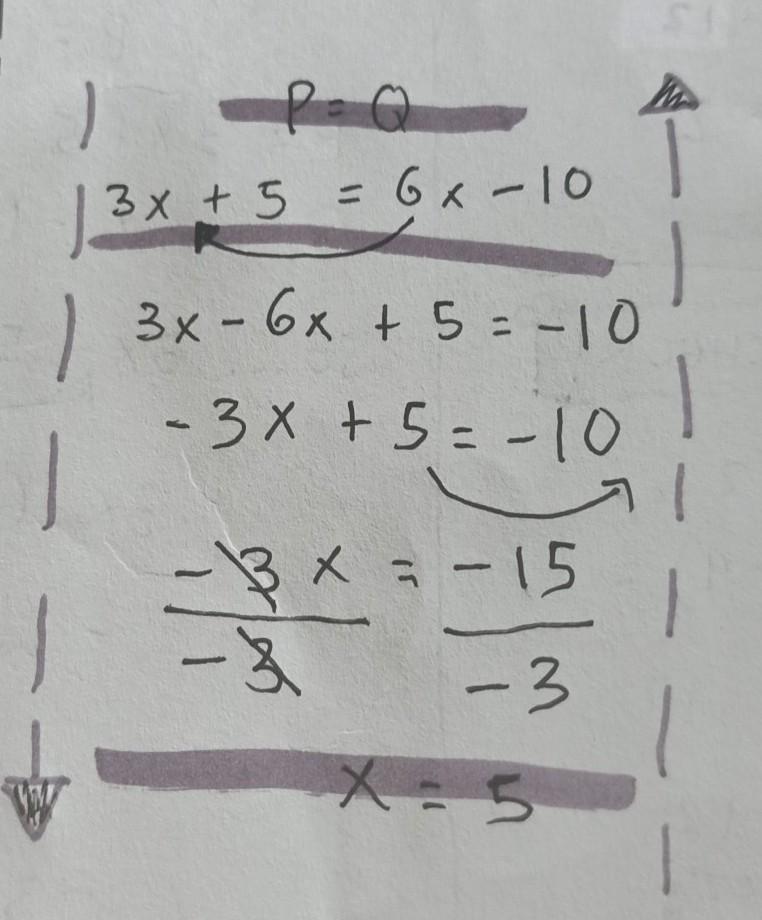 P = Q
3x + 5 = 6x - 10
3x - 6x + 5 = -10
-3x + 5 = -10
-3x = -15
-3 -3
x = 5